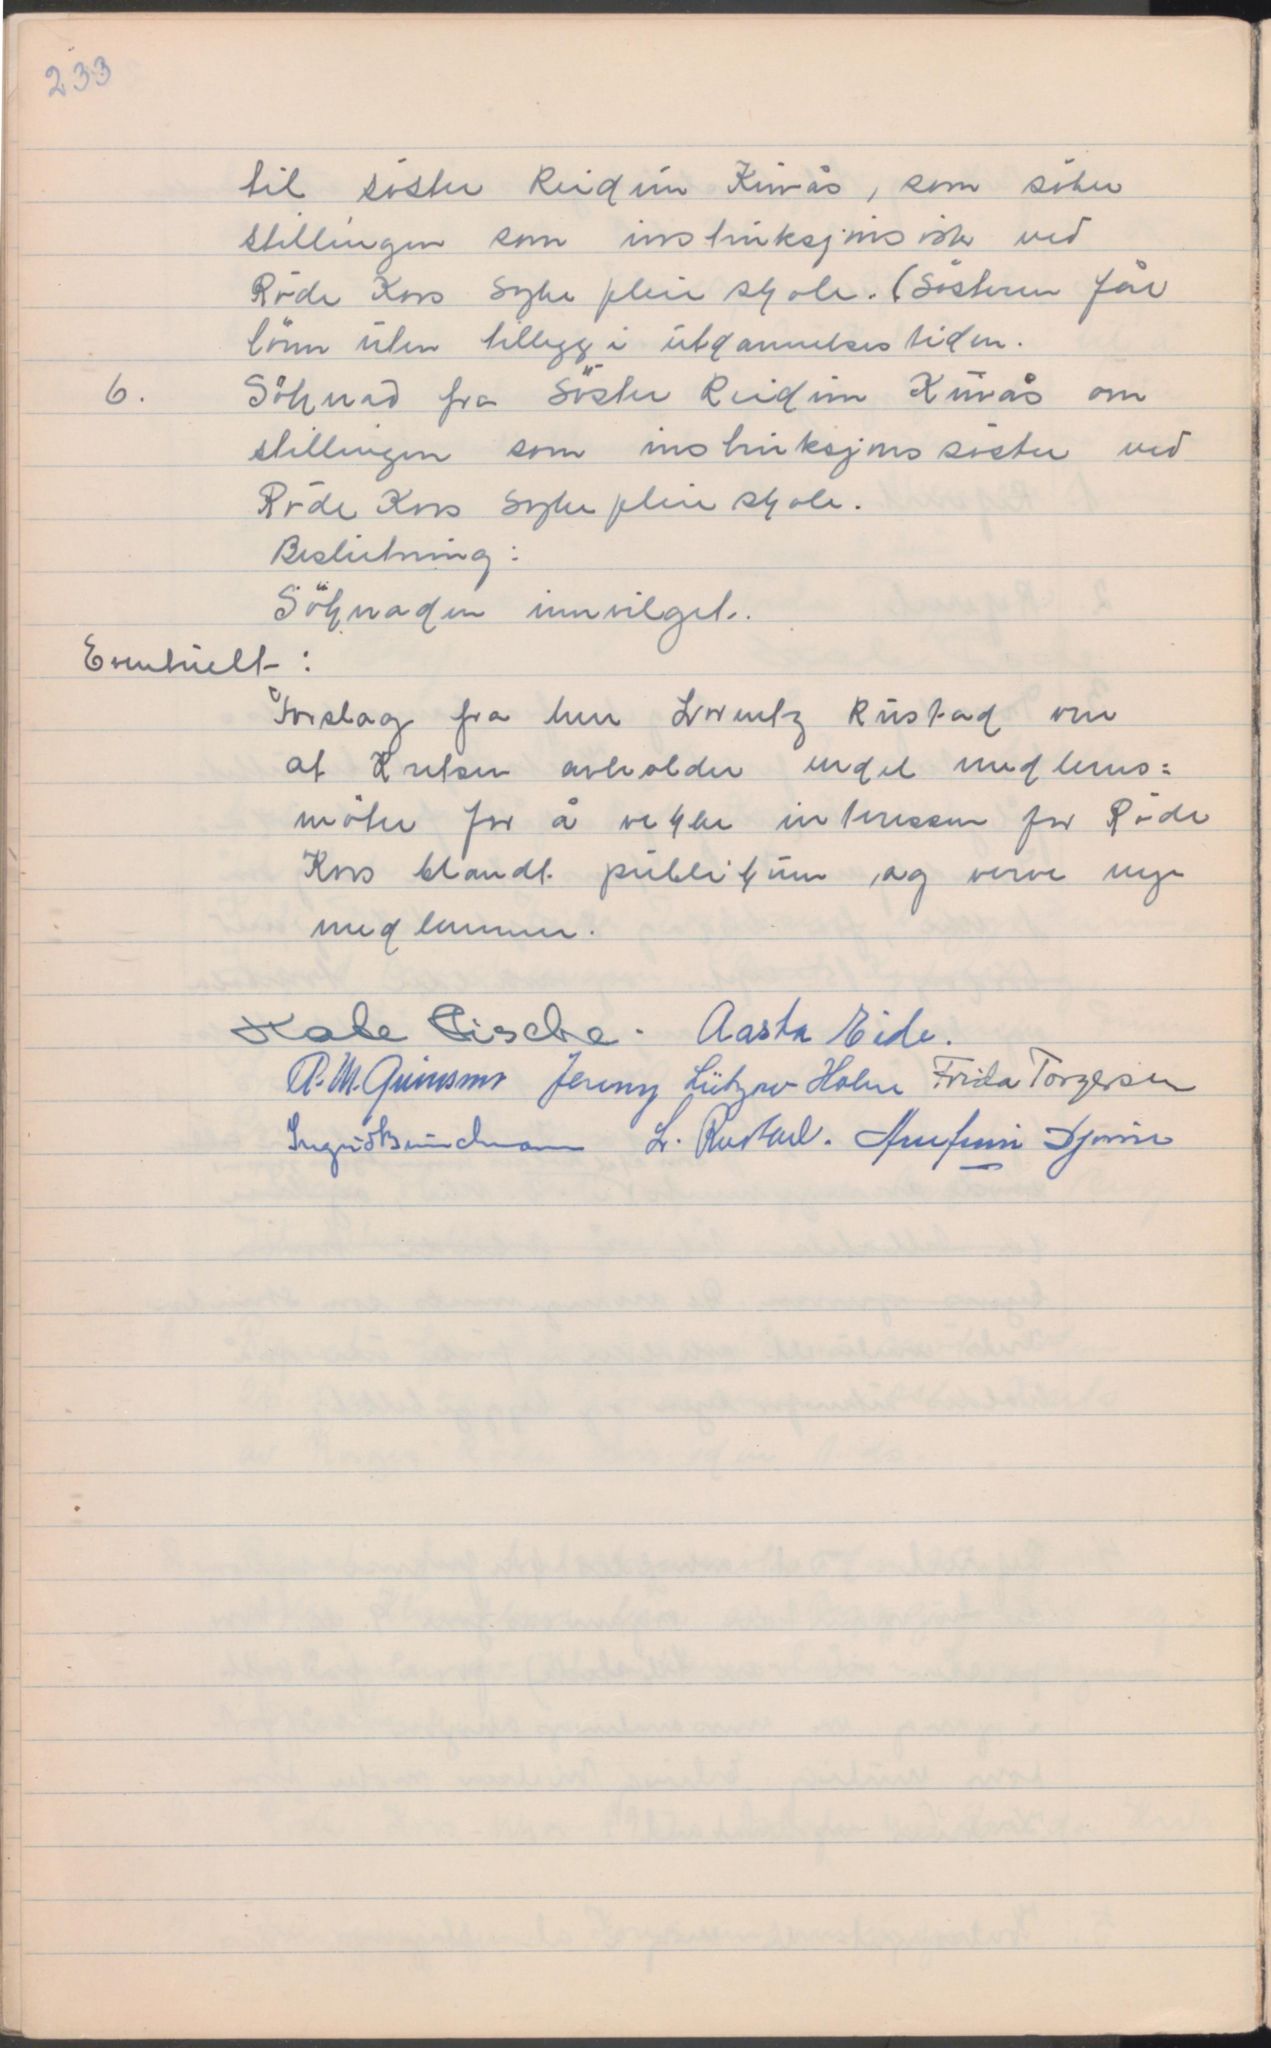 233
til söster Reidun Kurås, som söker
stillingen som instruksjonssöster ved
Röde Kors Sykepleieskole. (Sösteren får
lönn uten tillegg i utdannelsestiden.
6. Söknad fra Söster Reidun Kurås om
stillingen som instruksjonssöster ved
Röde Kors Sykepleieskole.
Beslutning:
Söknaden innvilget.
Eventuelt:
Forslag fra herr Lorentz Rustad om
at Kretsen avholder endel medlems=
möter for å vekke interessen for Röde
Kors blandt publikum, og verve nye
medlemmer.
Aasta Eide.
Jenny Lützow Holm Frida Torgersen
L. Rustad.